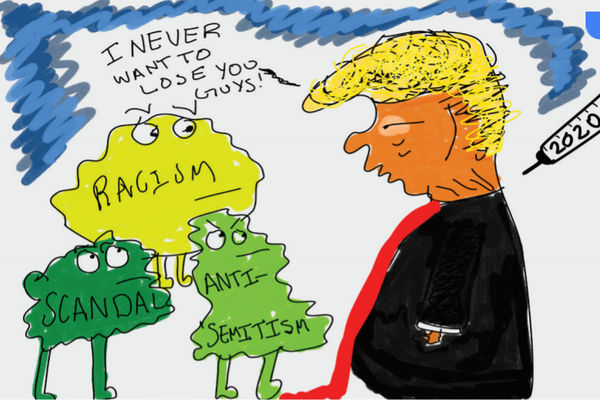 I NEVER
WANT TO
LOSE YOU
GUYS!
RACISM
SCANDAL
ANTI-
SEMITISM
2020